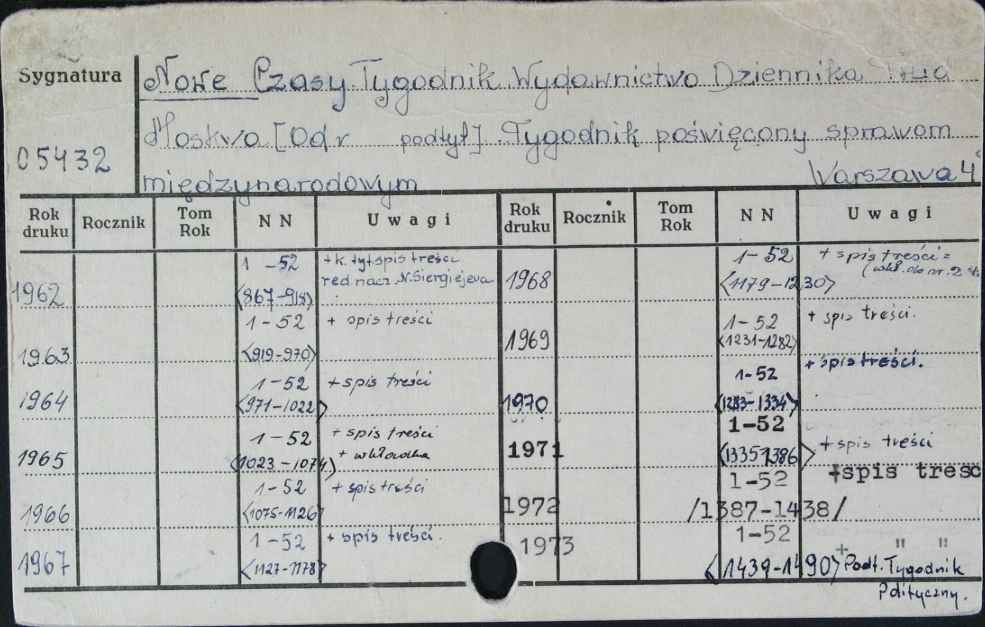 Sygnatura
05432
Nowe Czasy. Tygodnik. Wydawnictwo Dziennika
Moskwa [Od r podtyt]. Tygodnik poświęcony sprawom
międzynarodowym Warszawa 4
Rok druku Rocznik Tom Rok NN Uwagi Rok druku Rocznik Tom Rok NN Uwagi
1962 1-52 <867-918> +k. tyt. spis treści red nacz. N. Siergiejeva
1963 1-52 <919-970> + spis treści
1964 1-52 <971-1022> + spis treści
1965 1-52 <1023-1074> + spis treści + wkładka
1966 1-52 <1075-1126> + spis treści
1967 1-52 <1127-1178> + spis treści.
1968 1-52 <1179-1230> + spis treści = (wkł. do nr. 2
1969 1-52 <1231-1282> + spis treści.
1970 1-52 <1283-1334> + spis treści.
1971 1-52 <1335-1386> + spis treści
1972 1-52 /1387-1438/ +spis treśc
1973 1-52 <1439-1490> + " "
Podt. Tygodnik
Polityczny.